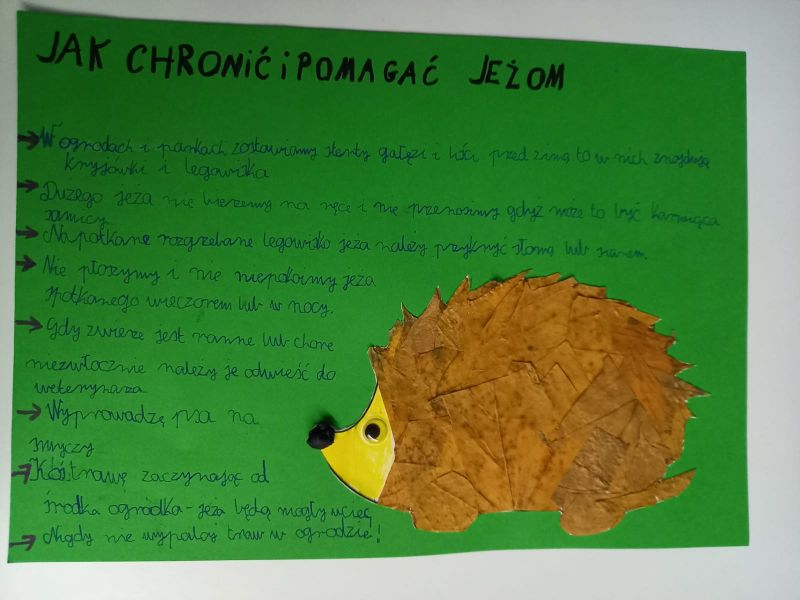 JAK CHRONIĆ i POMAGAĆ JEŻOM
→ W ogrodach i parkach zostawiamy sterty gałęzi i liści przed zimą to w nich znajdują
kryjówki i legowiska
→ Dużego jeża nie bierzemy na ręce i nie przenosimy gdyż może to być karmiąca
samicy
→ Napotkane rozgrzebane legowisko jeża należy przykryć słomą lub sianem.
→ Nie płoszymy i nie niepokoimy jeża
spotkanego wieczorem lub w nocy.
→ Gdy zwierze jest ranne lub chore
niezwłocznie należy je odwieść do
weterynarza
→ Wyprowadzę psa na
smyczy
→ Koś trawę zaczynając od
środka ogródka - jeża będą mogły uciec
→ Nigdy nie wypalaj traw w ogrodzie!